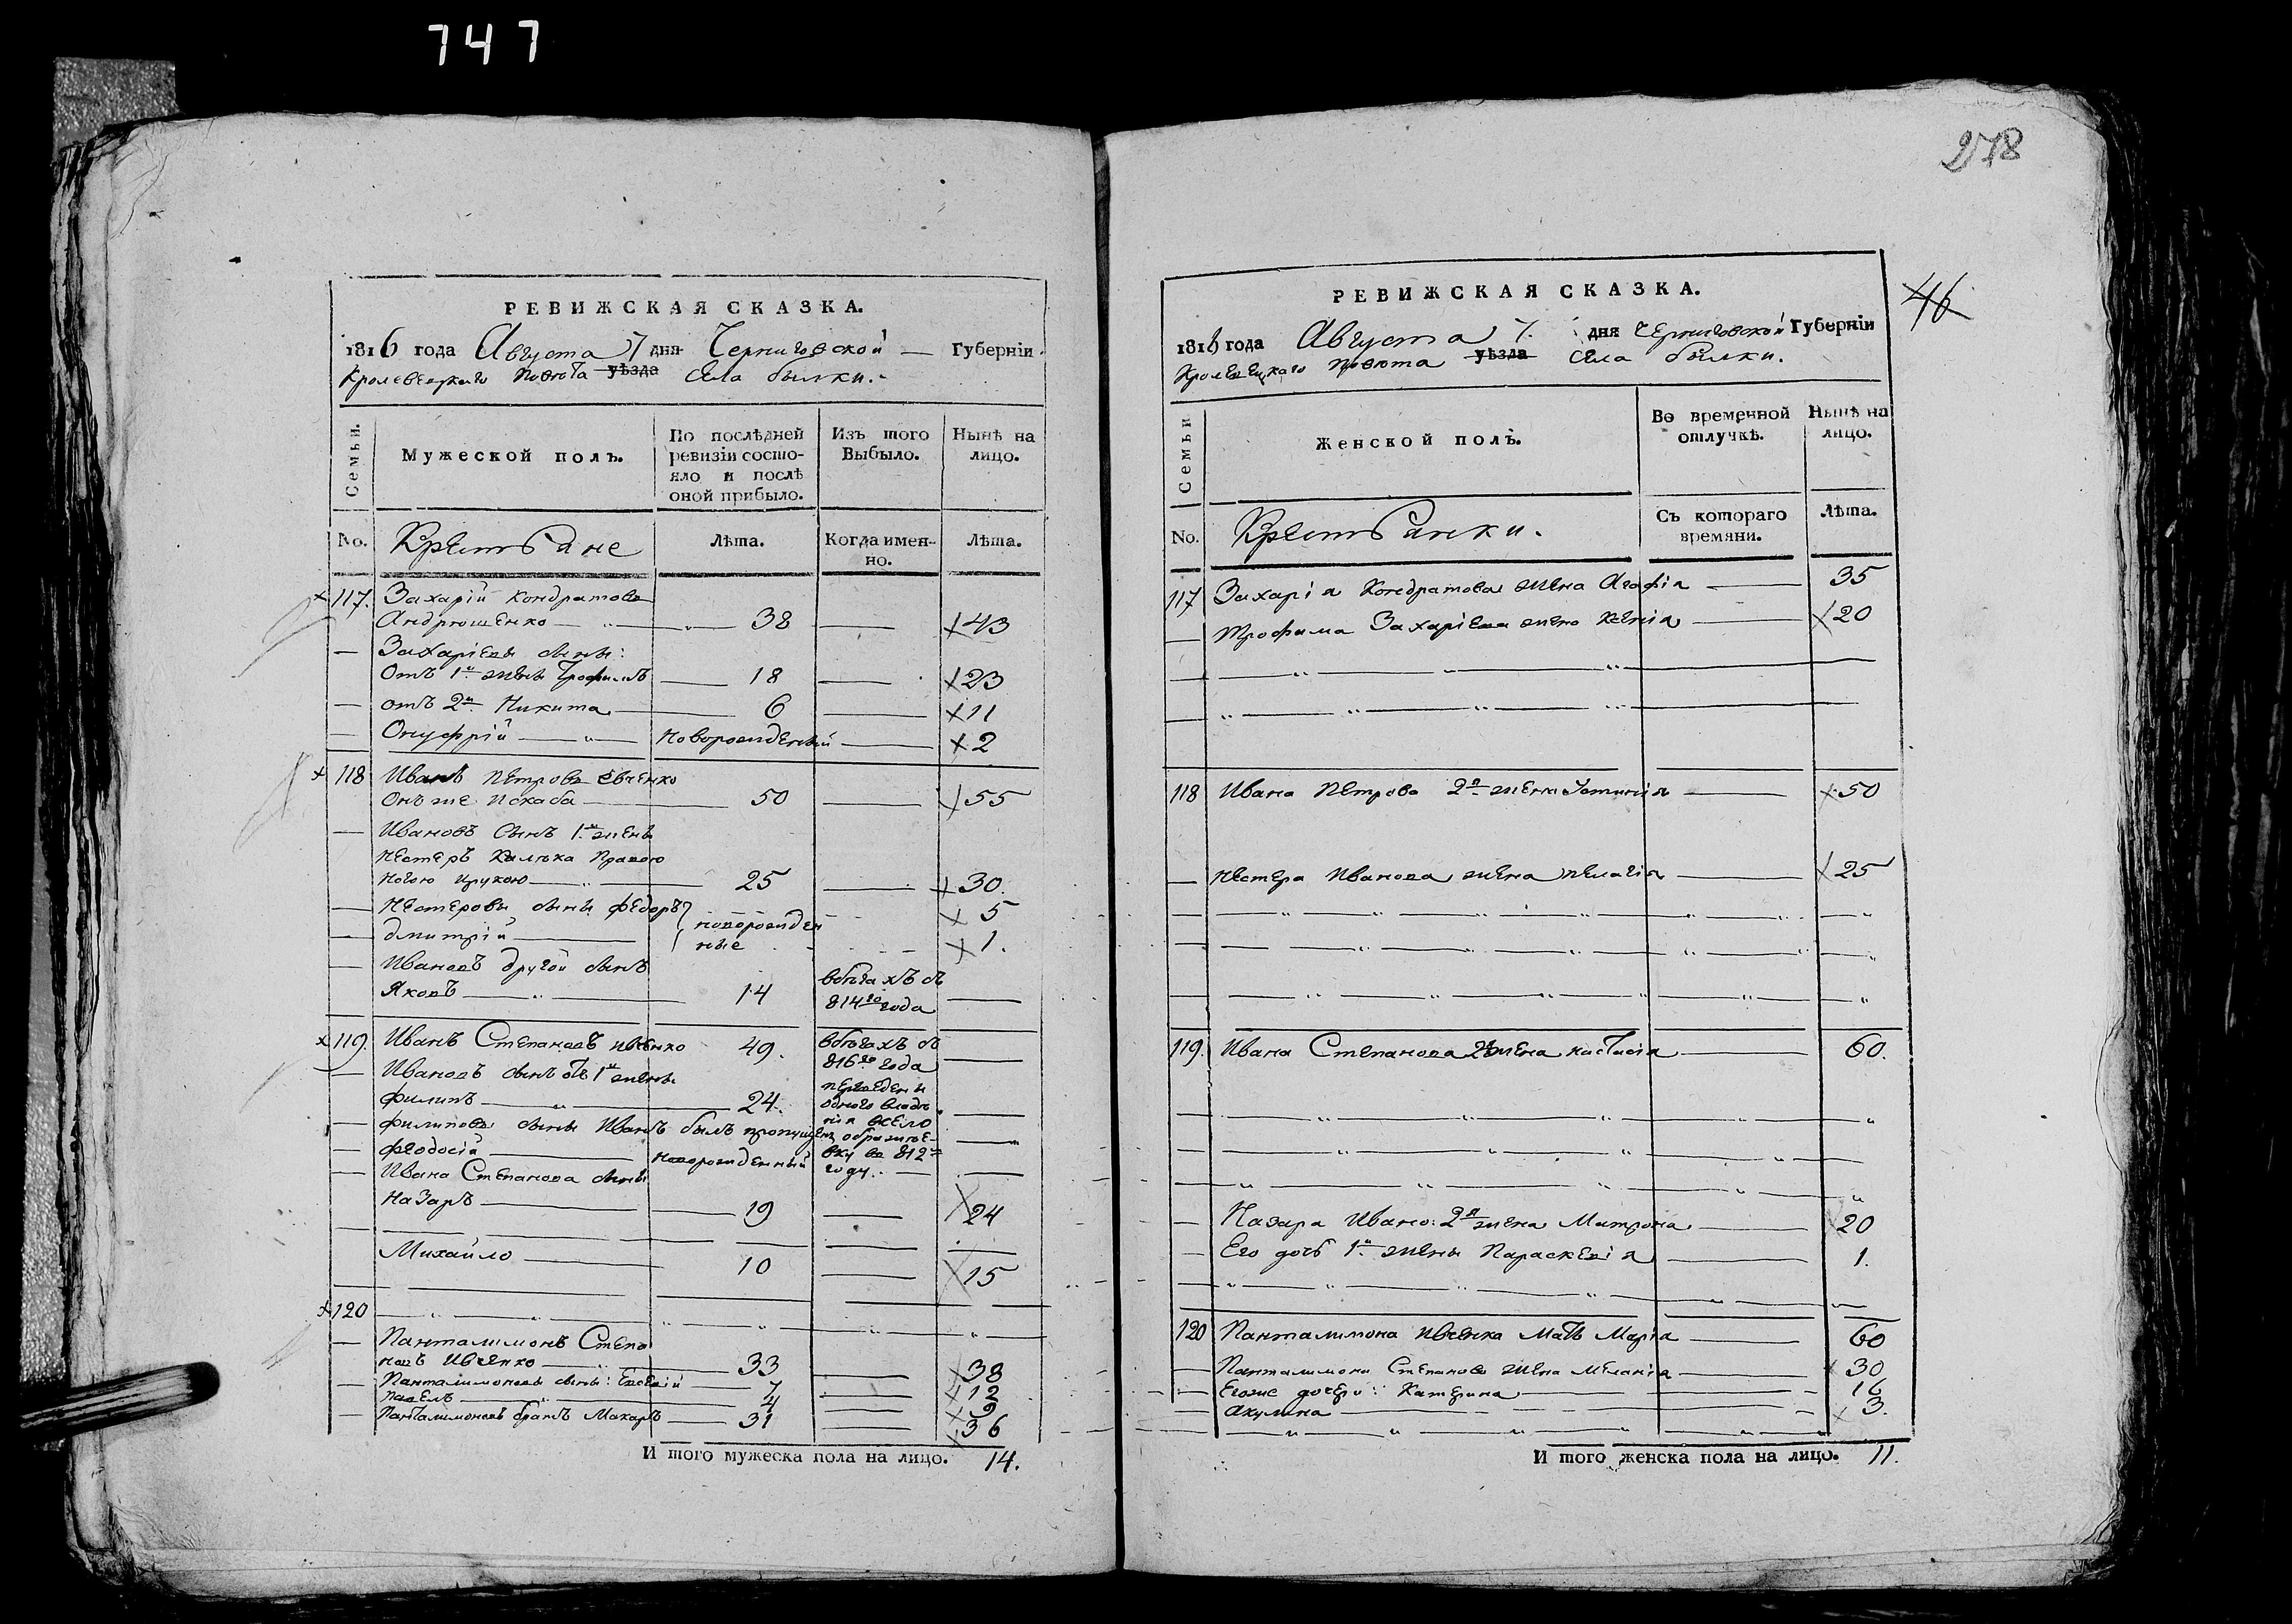 747
278
46
РЕВИЖСКАЯ СКАЗКА.
1816 года Августа 7 дня Черниговской Губерніи.
Кролевецкаго повѣта уѣзда села былки.
Семьи.
Мужеской полъ.
По послѣдней ревизіи состояло и послѣ оной прибыло.
Изъ того Выбыло.
Нынѣ на лицо.
No. Крестьяне Лѣта. Когда именно. Лѣта.
117. Захарій Кондратовъ
Андрющенко 38 43
Захаріевы сыны:
Отъ 1й жены Трофимъ 18 23
отъ 2й Никита 6 11
Онуфрій новорожденый 2
118 Иванъ Петровъ
Онъ же Искаба 50 55
Ивановъ сынъ 1й жены
Нестеръ Калѣка правою
ногою ирукою 25 30.
Нестеровы сыны федоръ новорожден 5
дмитрій ные 1.
Ивановъ другой сынъ вбѣгахъ съ
Яковъ 14 814го года
119. Иванъ Степановъ Ивченко 49. вбѣгахъ съ 816го года
Ивановъ сынъ отъ 1й жены
филипъ 24.
филиповы сыны Иванъ былъ пропущенъ
феодосій новорожденный 812 году.
Ивана Степанова сыны
Назаръ 19 24
Михайло 10 15
120
Панталимонъ Степа
новъ Ивченко 33 38
Панталимоновы сыны: Евсевій 7 12
павелъ 4 9
Панталимоновъ братъ Макаръ 31 36
И того мужеска пола на лицо. 14.
РЕВИЖСКАЯ СКАЗКА.
1816 года Августа 7. дня Черниговской Губерніи
Кролевецкаго повѣта уѣзда села былки.
Семьи
Женской полъ.
Во временной отлучкѣ.
Нынѣ на лицо.
No. Крестьянки. Съ котораго времяни. Лѣта.
117 Захарія Кондратова жена Агафія 35
Трофима Захаріева жена Ксенія 20
118 Ивана Петрова 2я жена Устинія 50
Нестера Иванова жена пелагія 25
119. Ивана Степанова 2я жена настасія 60.
Назара Ивано: 2я жена Матрона 20
Его дочь 1й жены Параскевія 1.
120 Панталимона Ивченка мать Марія 60
Панталимона Степанова жена Меланія 30
Егоже дочери: Катерина 16
Акулина 3.
И того женска пола на лицо. 11.